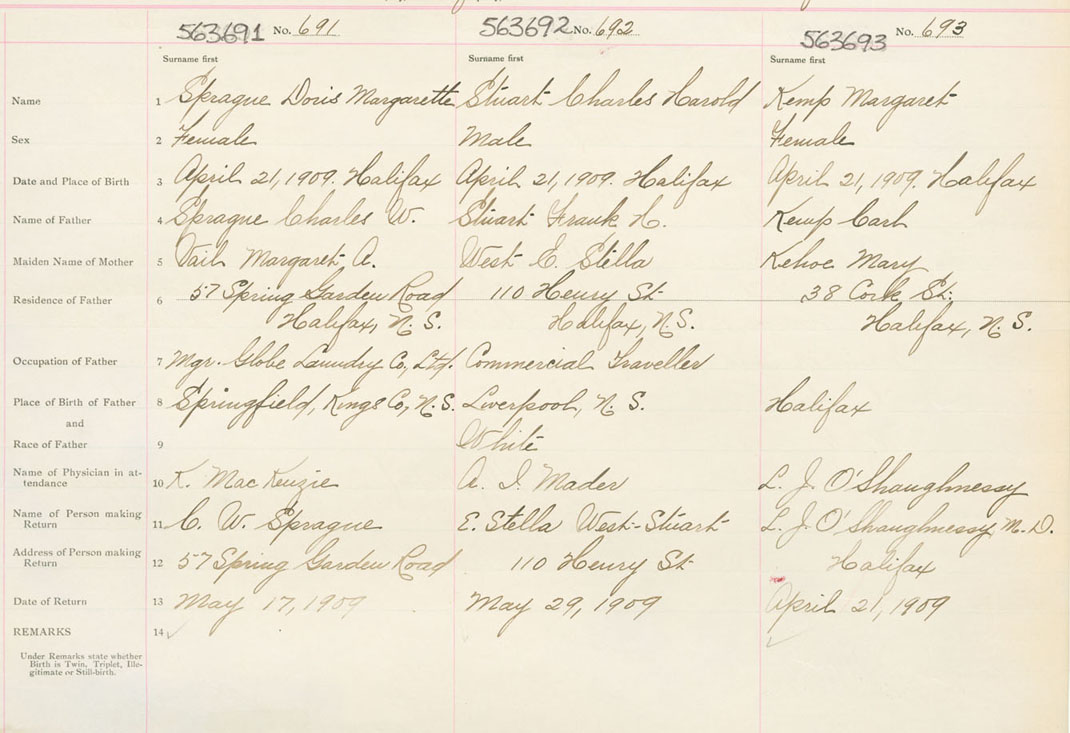 563691 No. 691 563692 No. 692 563693 No. 693
Surname first Surname first Surname first
Name 1 Sprague Doris Margarette Stuart Charles Harold Kemp Margaret
Sex 2 Female Male Female
Date and Place of Birth 3 April 21, 1909. Halifax April 21, 1909. Halifax April 21, 1909. Halifax
Name of Father 4 Sprague Charles W. Stuart Frank H. Kemp Carl
Maiden Name of Mother 5 Vail Margaret A. West E. Stella Kehoe Mary
Residence of Father 6 57 Spring Garden Road 110 Henry St 38 Cork St.
Halifax, N. S. Halifax, N. S. Halifax, N. S.
Occupation of Father 7 Mgr. Globe Laundry Co, Ltd. Commercial Traveller
Place of Birth of Father 8 Springfield, Kings Co, N. S. Liverpool, N. S. Halifax
and
Race of Father 9 White
Name of Physician in at-
tendance 10 K. MacKenzie A. I. Mader L. J. O'Shaughnessy
Name of Person making
Return 11 C. W. Sprague E. Stella West-Stuart L. J. O'Shaughnessy, M. D.
Address of Person making
Return 12 57 Spring Garden Road 110 Henry St Halifax
Date of Return 13 May 17, 1909 May 29, 1909 April 21, 1909
REMARKS 14
Under Remarks state whether
Birth is Twin, Triplet, Ille-
gitimate or Still-birth.